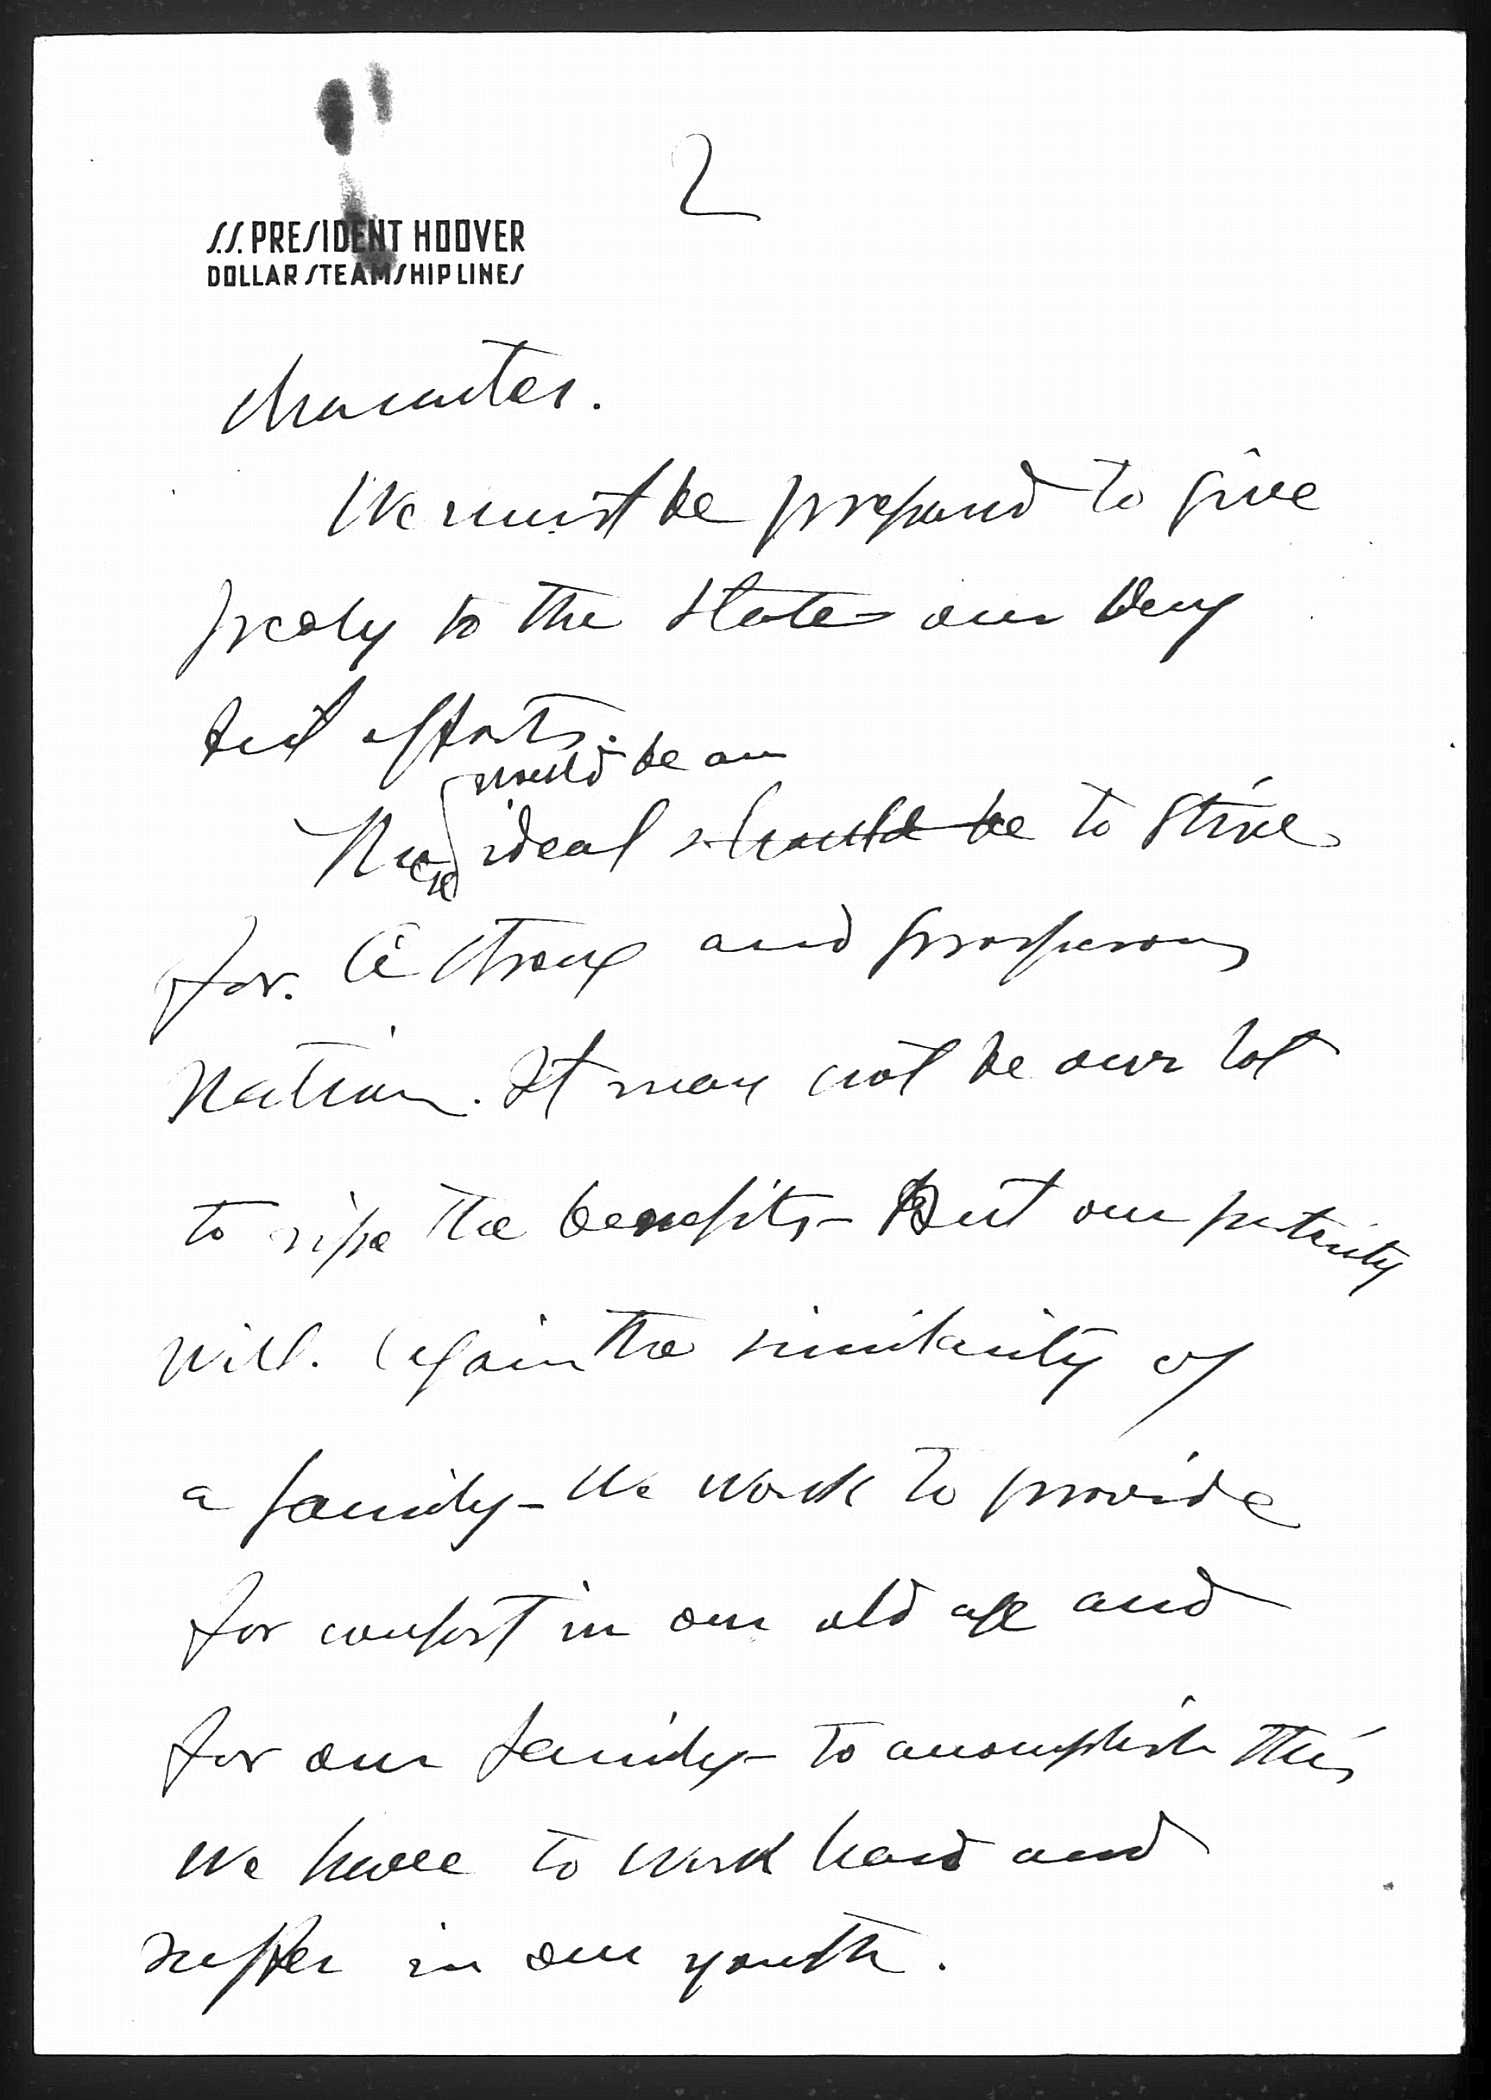 2
S.S. PRESIDENT HOOVER
DOLLAR STEAMSHIP LINES
character.
We must be prepared to give
freely to the state our very
best efforts.
would be an
ideal should be to strive
for. A strong and prosperous
Nation. It may not be our lot
to ripe the benefits – But our posterity
will. Again the similarity of
a family – We work to provide
for comfort in our old age and
for our family – to accomplish this
we have to work hard and
suffer in our youth.